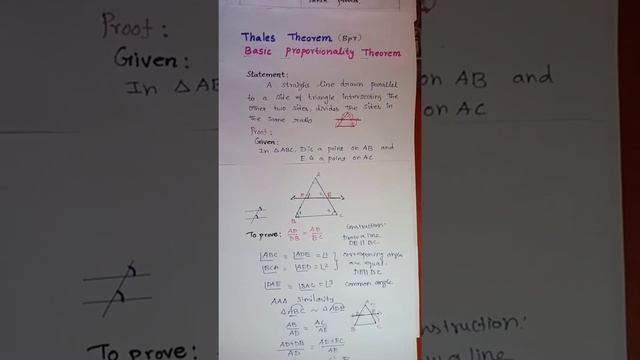 Thales Theorem (Bpt)
Basic Proportionality Theorem
Statement:
A straight line drawn parallel
to a side of triangle intersecting the
other two sides, divides the sides in
the same ratio
Proof:
Given:
In △ABC, D is a point on AB and
E is a point on AC
A
B C
To prove: AD/DB = AD/EC
Construction:
Draw a line
DE || BC
∠ABC = ∠ADE = ∠1
∠BCA = ∠AED = ∠2
Corresponding angle
are equal
DE || BC
∠DAE = ∠BAC = ∠3 Common angle
AAA Similarity
△ABC ~ △ADE
AB/AD = AC/AE
AD+DB/AD = AD+EC/AE
Proof:
Given:
In △AB
on AB and
on AC
nstruction:
raw a line
To prove: